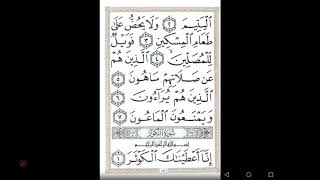 ٱلْيَتِيمَ ٢ وَلَا يَحُضُّ عَلَىٰ
طَعَامِ ٱلْمِسْكِينِ ٣ فَوَيْلٌ
لِّلْمُصَلِّينَ ٤ ٱلَّذِينَ هُمْ
عَن صَلَاتِهِمْ سَاهُونَ ٥
ٱلَّذِينَ هُمْ يُرَآءُونَ ٦
وَيَمْنَعُونَ ٱلْمَاعُونَ ٧
سُورَةُ الكَوْثَر
بِسْمِ ٱللَّهِ ٱلرَّحْمَٰنِ ٱلرَّحِيمِ
إِنَّآ أَعْطَيْنَٰكَ ٱلْكَوْثَرَ ١